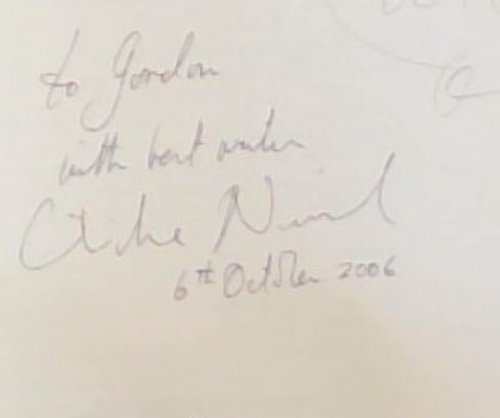 to Gordon
with best wishes
6th October 2006